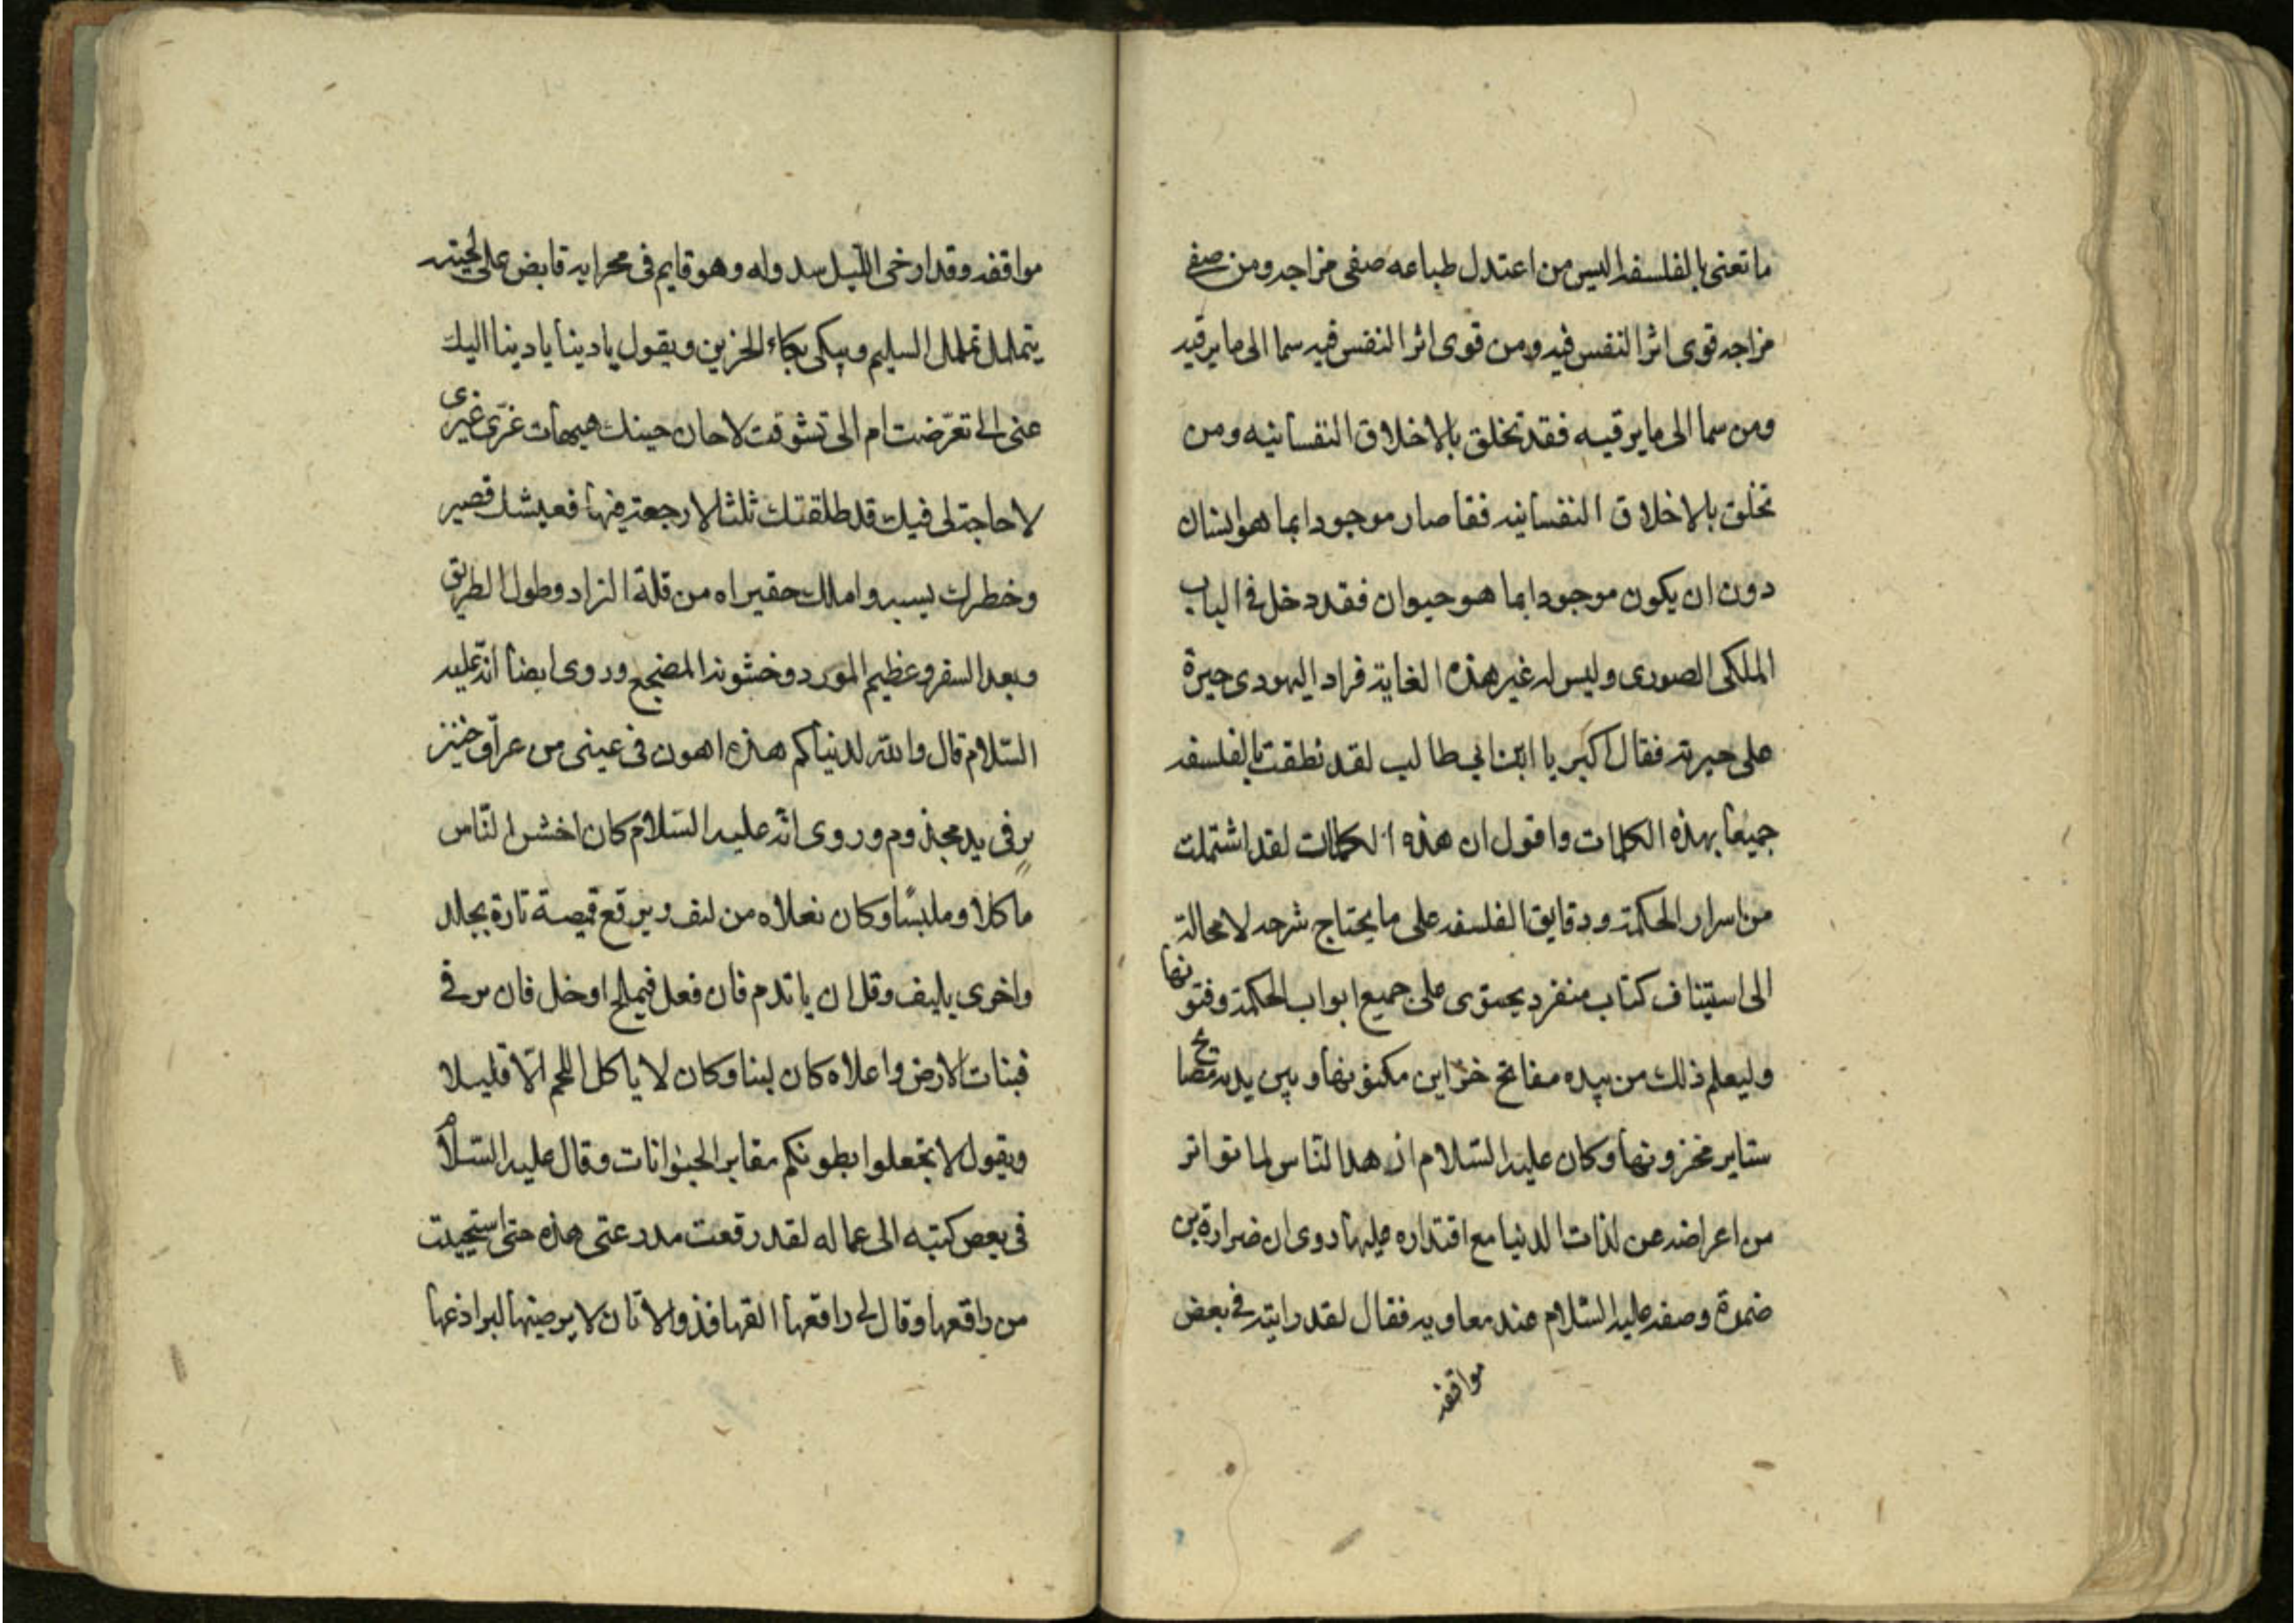 ما تعنى بالفلسفه اليس من اعتدل طباعه صفى مزاجه ومن صفى
مزاجه قوى اثر النفس فيه ومن قوى اثر النفس فيه سما الى ما يرقيه
ومن سما الى ما يرقيه فقد تخلق بالاخلاق النفسانيه ومن
تخلق بالاخلاق النفسانيه فقا صار موجودا بما هو انسان
دون ان يكون موجودا بما هو حيوان فقد دخل فى الباب
الملكى الصورى وليس له غير هذه الغاية فزاد اليهودى حيرة
على حيرته فقال اكبر يا ابن ابي طالب لقد نطقت بالفلسفه
جميعا بهذه الكلمات واقول ان هذه الكلمات لقد اشتملت
من اسرار الحكمة ودقايق الفلسفه على ما يحتاج شرحه لا محالة
الى استيناف كتاب منفرد يحتوى على جميع ابواب الحكمة وفنونها
وليعلم ذلك من بيده مفاتح خزاين مكنونها وبين يديه
ستاير مخزونها وكان عليه السلام ازهد الناس لما تواتر
من اعراضه عن لذات الدنيا مع اقتداره عليها روى ان ضرارة بن
ضمرة وصفه عليه السلام عند معاويه فقال لقد رايته فى بعض
مواقفه
مواقفه وقد ارخى الليل سدوله وهو قايم فى محرابه قابض على لحيته
يتململ تململ السليم ويبكى بكاء الحزين ويقول يا دينا يا دينا اليك
عنى الى تعرّضت ام الى تشوقت لا حان حينك هيهات غرّى غيرى
لا حاجة لى فيك قد طلقتك ثلثا لا رجعة فيها فعيشك قصير
وخطرك يسير واملك حقير اه من قلة الزاد وطول الطريق
وبعد السفر وعظيم المورد وخشونة المضجع وروى ايضا انه عليه
السلام قال والله لدنياكم هذه اهون فى عينى من عراق خنز
ير فى يد مجذوم وروى انه عليه السلام كان اخشن الناس
ماكلا وملبسًا وكان نعلاه من ليف ويرقع قميصة تارة بجلد
واخرى بليف وقل ان ياتدم فان فعل فبملح او خل فان ترقى
فبنات الارض واعلاه كان لبنا وكان لا ياكل اللحم الّا قليلا
ويقول لا تجعلوا بطونكم مقابر الحيوانات وقال عليه السّلام
فى بعض كتبه الى عماله لقد رقعت مدرعتى هذه حتى استحييت
من راقعها وقال لى راقعها القها فذو الاتان لا يرضيها لبراذعها